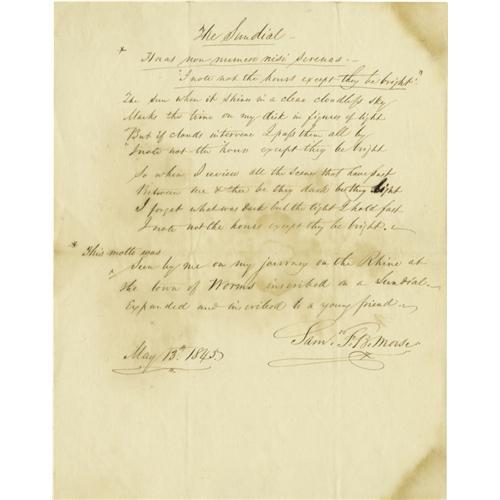 The Sundial –
* Horas non numero nisi serenas –
"I note not the hours except they be bright."
The sun when it shines in a clear cloudless sky
Marks the time on my disk in figures of light
But if clouds intervene I pass them all by
"I note not the hours except they be bright
So when I review all the scenes that have past
Between me & thee be they dark be they light
I forget what was dark but the light I hold fast
I note not the hours except they be bright. –
* This motto was
^ Seen by me on my journey on the Rhine at
the town of Worms inscribed on a Sundial –
Expanded and inscribed to a young friend –
Sam. F. B. Morse
May 13th 1845